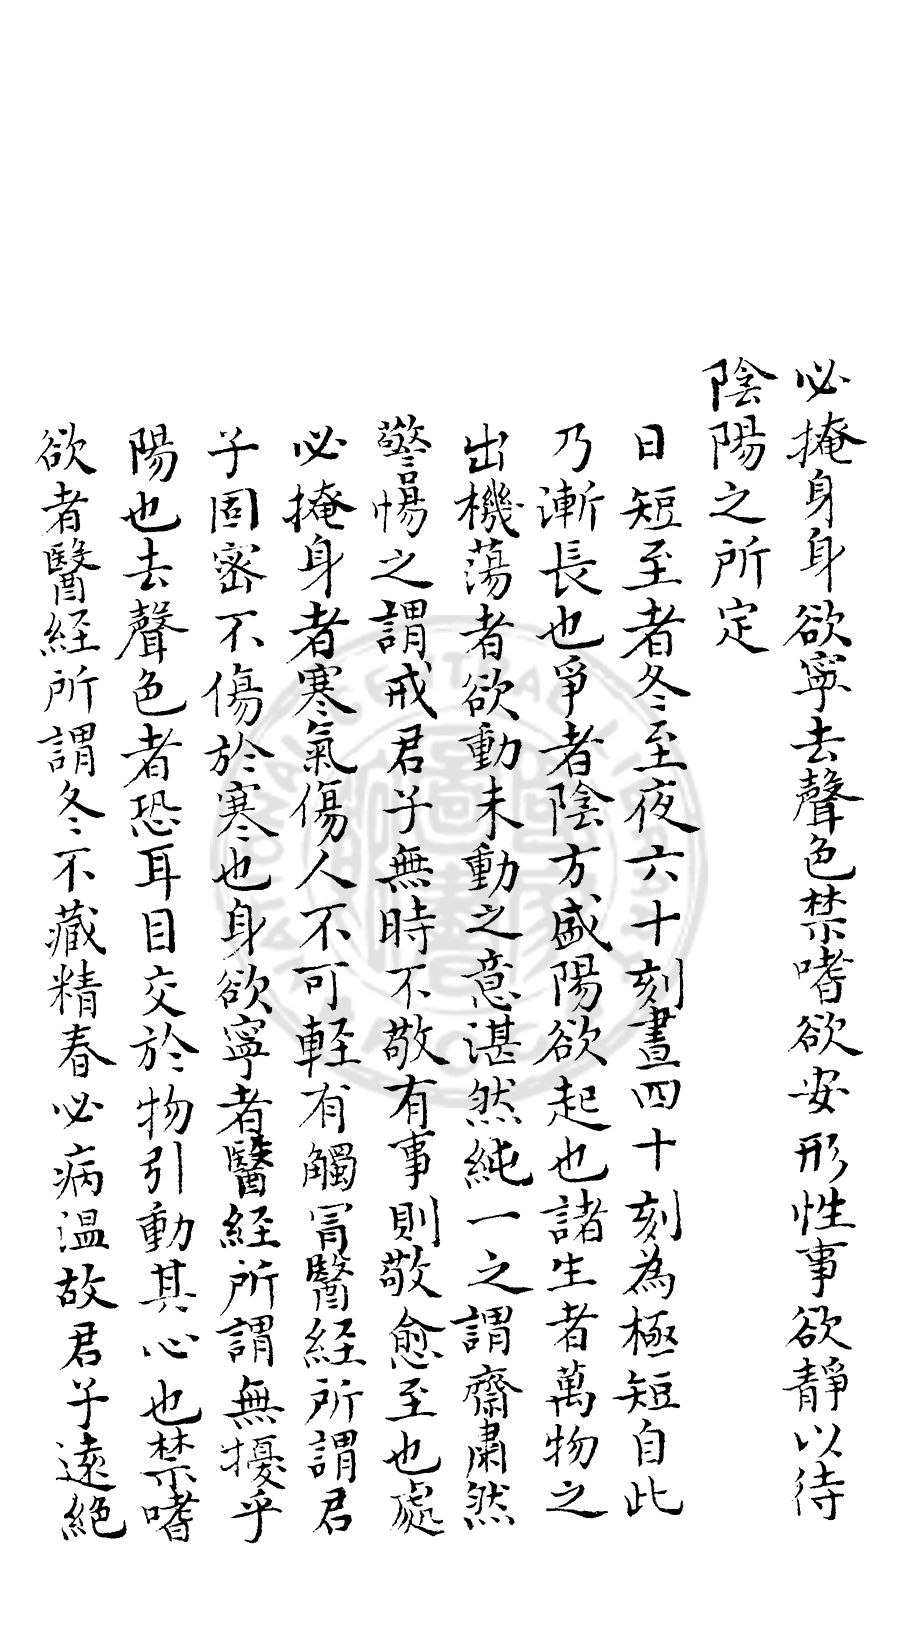 必掩身身欲寧去聲色禁嗜欲安形性事欲靜以待
陰陽之所定
日短至者冬至夜六十刻晝四十刻為極短自此
乃漸長也爭者陰方盛陽欲起也諸生者萬物之
出機蕩者欲動未動之意湛然純一之謂齋肅然
警惕之謂戒君子無時不敬有事則敬愈至也處
必掩身者寒氣傷人不可輕有觸冐醫經所謂君
子固密不傷於寒也身欲寧者醫經所謂無擾乎
陽也去聲色者恐耳目交於物引動其心也禁嗜
欲者醫經所謂冬不藏精春必病溫故君子遠絕